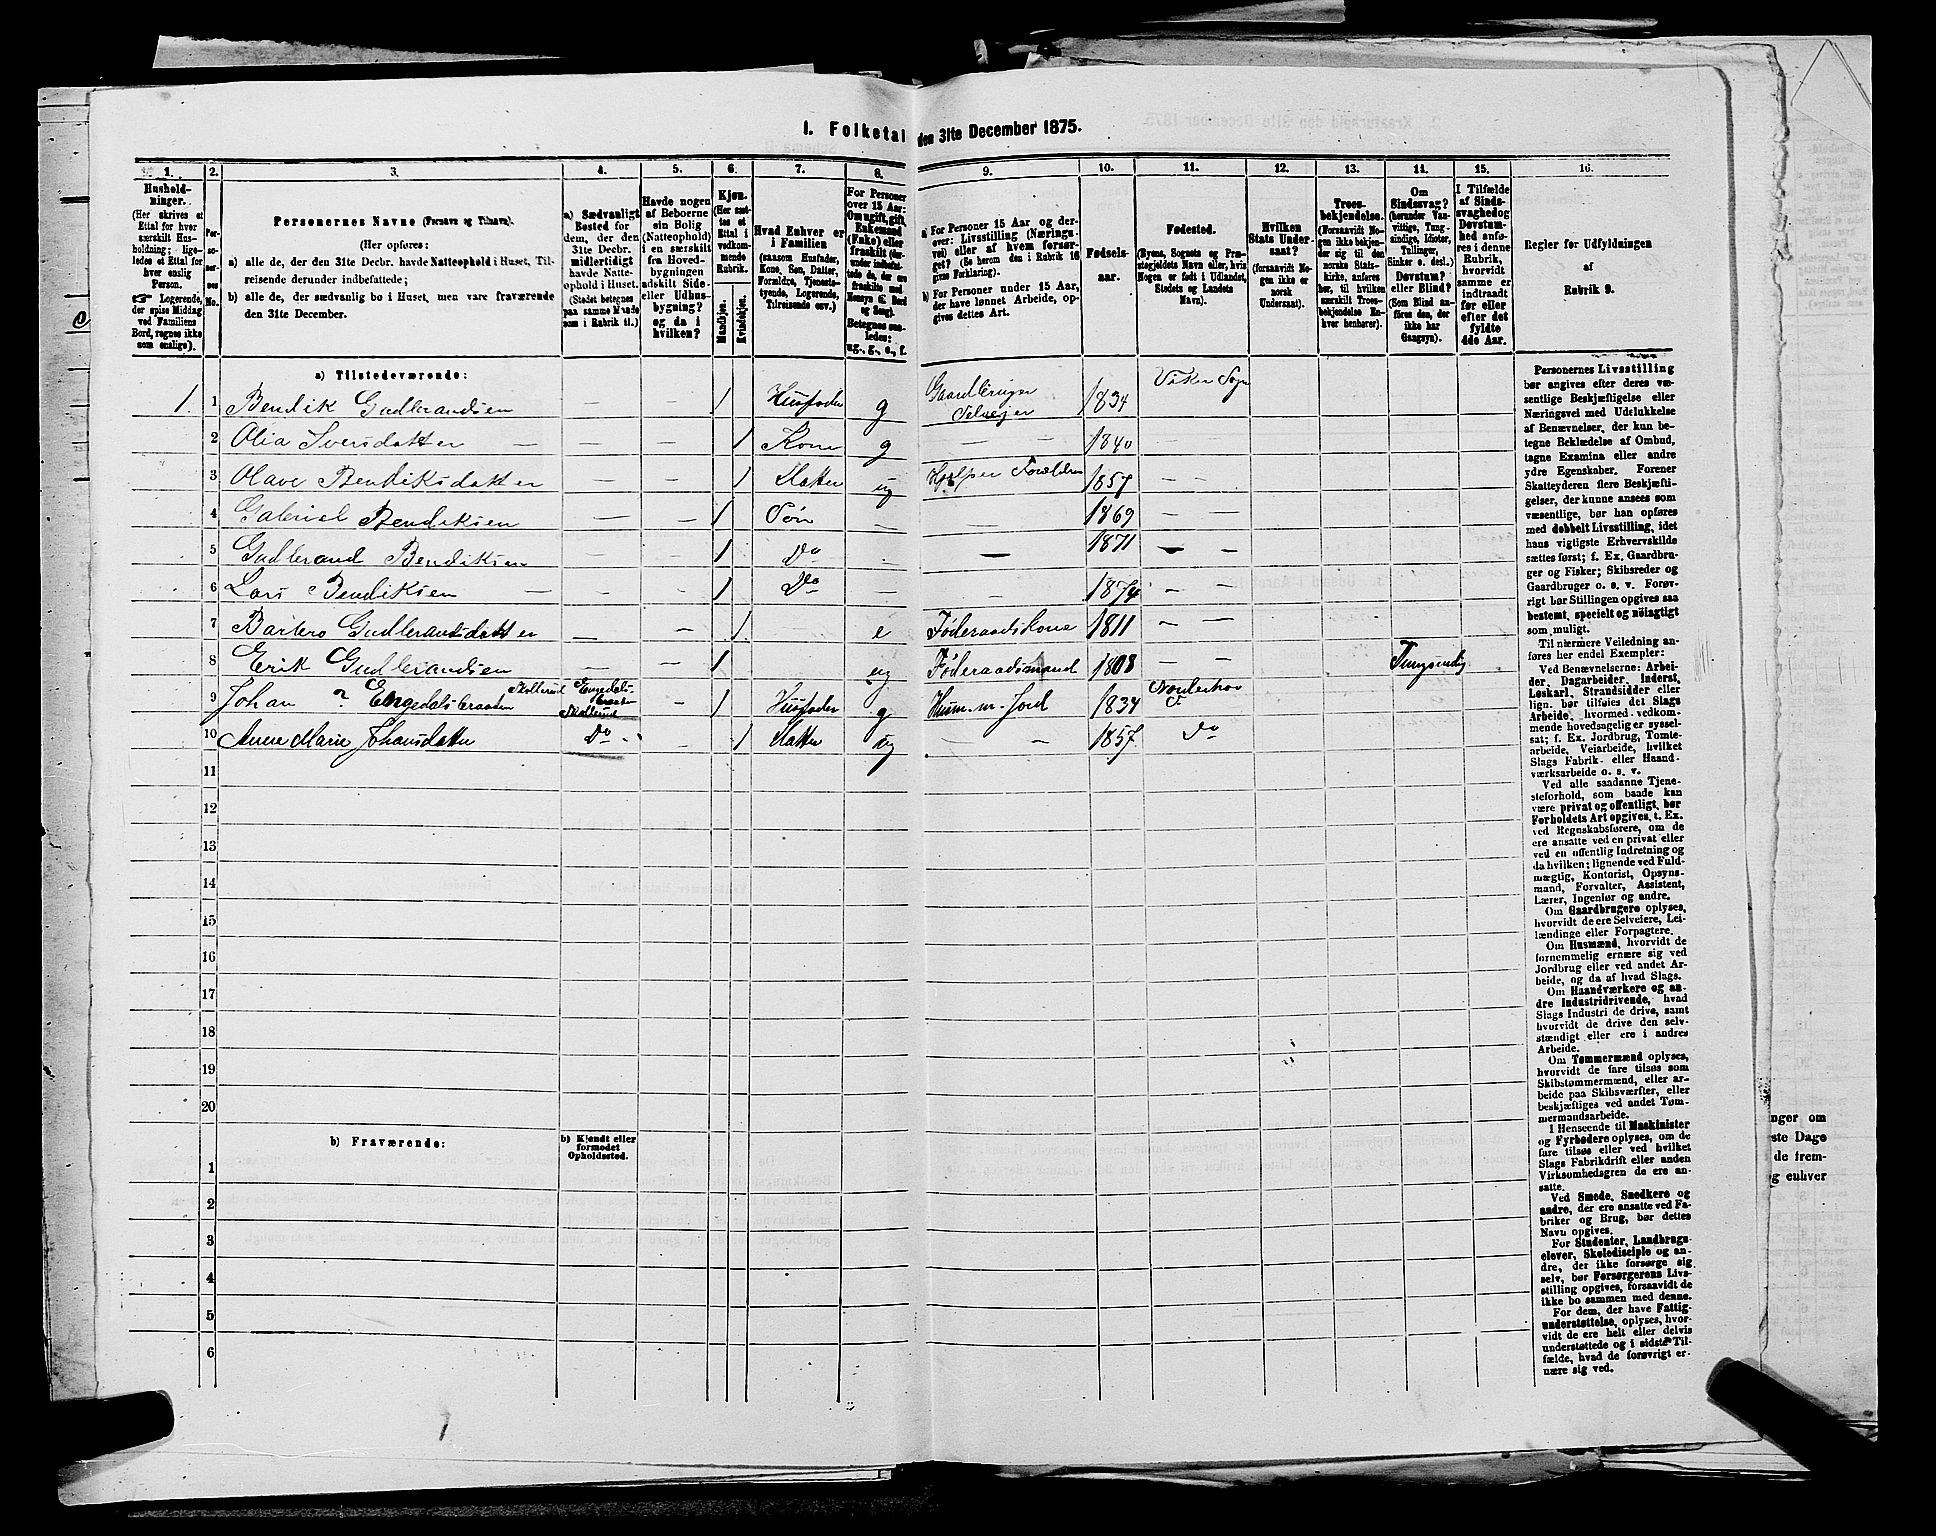 1. Folketal den 31te December 1875.
1. 2. 3. 4. 5. 6. 7. 8. 9. 10. 11. 12. 13. 14. 15. 16.
Husholdninger.
(Her skrives et Ettal for hver særskilt Husholdning; ligeledes et Ettal for hver enslig Person.
☞ Logerende, der spise Middag ved Familiens Bord, regnes ikke som enslige).
Personernes No.
Personernes Navne (Fornavn og Tilnavn).
(Her opføres:
a) alle de, der den 31te Decbr. havde Natteophold i Huset, Tilreisende derunder indbefattede;
b) alle de, der sædvanlig bo i Huset, men vare fraværende den 31te December.
a) Sædvanligt Bosted for dem, der den 31te Decbr. midlertidigt havde Natteophold i Huset.
(Stedet betegnes paa samme Maade som i Rubrik 11.)
Havde nogen af Beboerne sin Bolig (Natteophold) i en særskilt fra Hovedbygningen adskilt Side- eller Udhusbygning? og da i hvilken?
Kjøn.
(Her sættes et Ettal i vedkommende Rubrik.
Mandkjøn.
Kvindekjøn.
Hvad Enhver er i Familien
(saasom Husfader, Kone, Søn, Datter, Forældre, Tjenestetyende, Logerende, Tilreisende osv.)
For Personer over 15 Aar: Om ugift, gift, Enkemand (Enke) eller fraskilt
Betegnes saaledes: ug., g., e., f.
a) For Personer 15 Aar og derover: Livsstilling (Næringsvei) eller af hvem forsørget? (Se herom den i Rubrik 16 givne Forklaring).
b) For Personer under 15 Aar, der have lønnet Arbeide, opgives dettes Art.
Fødselsaar.
Fødested.
(Byens, Sognets og Præstegjeldets Navn eller, hvis Nogen er født i Udlandet, Stedets og Landets Navn).
Hvilken Stats Undersaat?
(forsaavidt Nogen ikke er norsk Undersaat).
Troesbekjendelse.
(Forsaavidt Nogen ikke bekjender sig til den norske Statskirke, anføres her, til hvilken særskilt Troesbekjendelse Enhver henhører).
Om Sindssvag?
(herunder Vanvittige, Tungsindige, Idioter, Tullinger, Sinker o. desl.)
Døvstum? eller Blind?
(Som Blind anføres den, der ikke har Gangsyn).
I Tilfælde af Sindssvaghed og Døvstumhed anføres i denne Rubrik, hvorvidt samme er indtraadt før eller efter det fyldte 4de Aar.
Regler for Udfyldningen af Rubrik 9.
a) Tilstedeværende:
1. 1 Bendik Gudbrandsen — — 1 Husfader g Gaardbruger Selvejer 1834 Viker Sogn
2 Olia Iversdatter — — — 1 Kone g — — 1840 — —
3 Olave Bendiksdatter — — 1 Datter ug Hjelper Forældre 1857 — —
4 Gabriel Bendiksen — — 1 Søn — 1869 — —
5 Gudbrand Bendiksen — — 1 Do — — 1871 — —
6 Lars Bendiksen — — — 1 Do — — 1874 — —
7 Barbro Gudbrandsdatter — — 1 e Føderaadskone 1811 — —
8 Erik Gudbrandsen — — 1 ug Føderaadsmand 1808 — — Tungsindig
9 Johan ? Engedalsbraaten Skollerud Engedalsbraaten Skollerud — 1 Husfader g Husm. m. Jord 1834 Norderhov
10 Anne Marie Johansdatter Do — 1 Datter ug — — 1857 Do
11
12
13
14
15
16
17
18
19
20
b) Fraværende:
b) Kjendt eller formodet Opholdssted.
1
2
3
4
5
6
Personernes Livsstilling
bør angives efter deres væsentlige
Beskjæftigelse eller
Næringsvei med Udelukkelse
af Benævnelser, der kun betegne
Beklædelse af Ombud,
tagne Examina eller andre
ydre Egenskaber. Forener
Skatteyderen flere Beskjæftigelser,
der kunne ansees som
væsentlige, bør han opføres
med dobbelt Livsstilling, idet
hans vigtigste Erhvervskilde
sættes først; f. Ex. Gaardbruger
og Fisker; Skibsreder og
Gaardbruger o. s. v. Forøvrigt
bør Stillingen opgives saa
bestemt, specielt og nöiagtigt
som muligt.
Til nærmere Veiledning anføres
her endel Exempler:
Ved Benævnelserne: Arbeider,
Dagarbeider, Inderst,
Løskarl, Strandsidder eller
lign. bør tilføies det Slags
Arbeide, hvormed vedkommende
hovedsagelig er sysselsat;
f. Ex. Jordbrug, Tomtearbeide,
Veiarbeide, hvilket
Slags Fabrik- eller Haandværksarbeide
o. s. v.
Ved alle saadanne Tjenesteforhold,
som baade kan
være privat og offentligt, bør
Forholdets Art opgives, t. Ex.
ved Regnskabsførere, om de
ere ansatte ved en privat eller
ved en offentlig Indretning og
da hvilken; lignende ved Fuldmægtig,
Kontorist, Opsynsmand,
Forvalter, Assistent,
Lærer, Ingeniør og andre.
Om Gaardbrugere oplyses,
hvorvidt de ere Selveiere, Leilændinge
eller Forpagtere.
Om Husmænd, hvorvidt de
fornemmelig ernære sig ved
Jordbrug eller ved andet Arbeide,
og da af hvad Slags.
Om Haandværkere og andre
Industridrivende, hvad
Slags Industri de drive, samt
hvorvidt de drive den selvstændigt
eller ere i andres
Arbeide.
Om Tømmermænd oplyses,
hvorvidt de fare tilsøs som
Skibstømmermænd, eller arbeide
paa Skibsværfter, eller
beskjæftiges ved andet Tømmermandsarbeide.
I Henseende til Maskinister
og Fyrbødere oplyses, om de
fare tilsøs eller ved hvilket
Slags Fabrikdrift eller anden
Virksomhedsgren de ere ansatte.
Ved Smede, Snedkere og
andre, der ere ansatte ved Fabriker
og Brug, bør dettes
Navn opgives.
For Studenter, Landbrugselever,
Skoledisciple og andre,
der ikke forsørge sig
selv, bør Forsørgerens Livsstilling
opgives, forsaavidt de
ikke bo sammen med denne.
For dem, der have Fattigunderstøttelse,
oplyses, hvorvidt
de ere helt eller delvis
understøttede og i sidste Tilfælde,
hvad de forøvrigt ernære
sig ved.